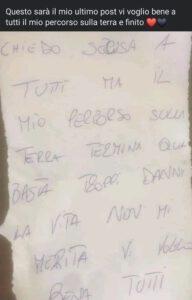 Questo sarà il mio ultimo post vi voglio bene a
tutti il mio percorso sulla terra e finito ❤️🖤
CHIEDO SCUSA A
TUTTI MA IL
MIO PERCORSO SULLA
TERRA TERMINA QUA
BASTA TROPPI DANNI
LA VITA NON MI
MERITA VI VOGLIO
BENE TUTTI